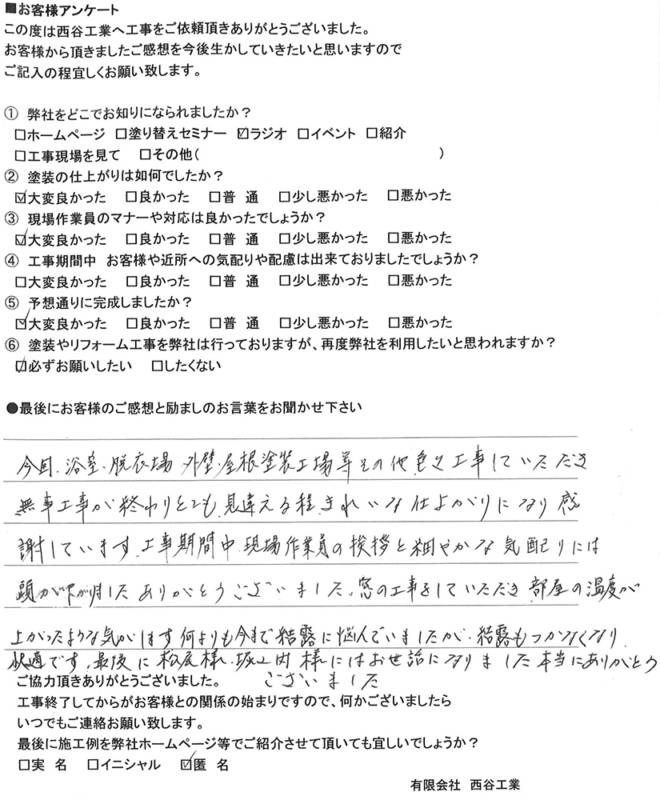 ■お客様アンケート
この度は西谷工業へ工事をご依頼頂きありがとうございました。
お客様から頂きましたご感想を今後生かしていきたいと思いますので
ご記入の程宜しくお願い致します。
① 弊社をどこでお知りになられましたか？
□ホームページ □塗り替えセミナー ☑ラジオ □イベント □紹介
□工事現場を見て □その他( )
② 塗装の仕上がりは如何でしたか？
☑大変良かった □良かった □普 通 □少し悪かった □悪かった
③ 現場作業員のマナーや対応は良かったでしょうか？
☑大変良かった □良かった □普 通 □少し悪かった □悪かった
④ 工事期間中 お客様や近所への気配りや配慮は出来ておりましたでしょうか？
□大変良かった □良かった □普 通 □少し悪かった □悪かった
⑤ 予想通りに完成しましたか？
☑大変良かった □良かった □普 通 □少し悪かった □悪かった
⑥ 塗装やリフォーム工事を弊社は行っておりますが、再度弊社を利用したいと思われますか？
☑必ずお願いしたい □したくない
●最後にお客様のご感想と励ましのお言葉をお聞かせ下さい
今回、浴室、脱衣場 外壁・屋根塗装工場等その他色々工事していただき
無事工事が終わりとても見違える程きれいな仕上がりになり感
謝しています。工事期間中、現場作業員の挨拶と細やかな気配りには
頭が下がりました ありがとうございました。窓の工事をしていただき 部屋の温度が
上がったような気がします 何よりも今まで結露に悩んでいましたが、結露もつかなくなり
快適です。最後に 松尾様、坂之内様にはお世話になりました 本当にありがとう
ございました
ご協力頂きありがとうございました。
工事終了してからがお客様との関係の始まりですので、何かございましたら
いつでもご連絡お願い致します。
最後に施工例を弊社ホームページ等でご紹介させて頂いても宜しいでしょうか？
□実 名 □イニシャル ☑匿 名
有限会社 西谷工業